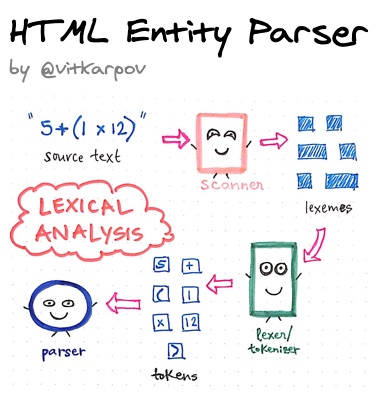 HTML Entity Parser
by @vitkarpov
"5+(1 x 12)"
source text
scanner
lexemes
LEXICAL
ANALYSIS
5 +
( 1
x 12
)
tokens
lexer/
tokenizer
parser